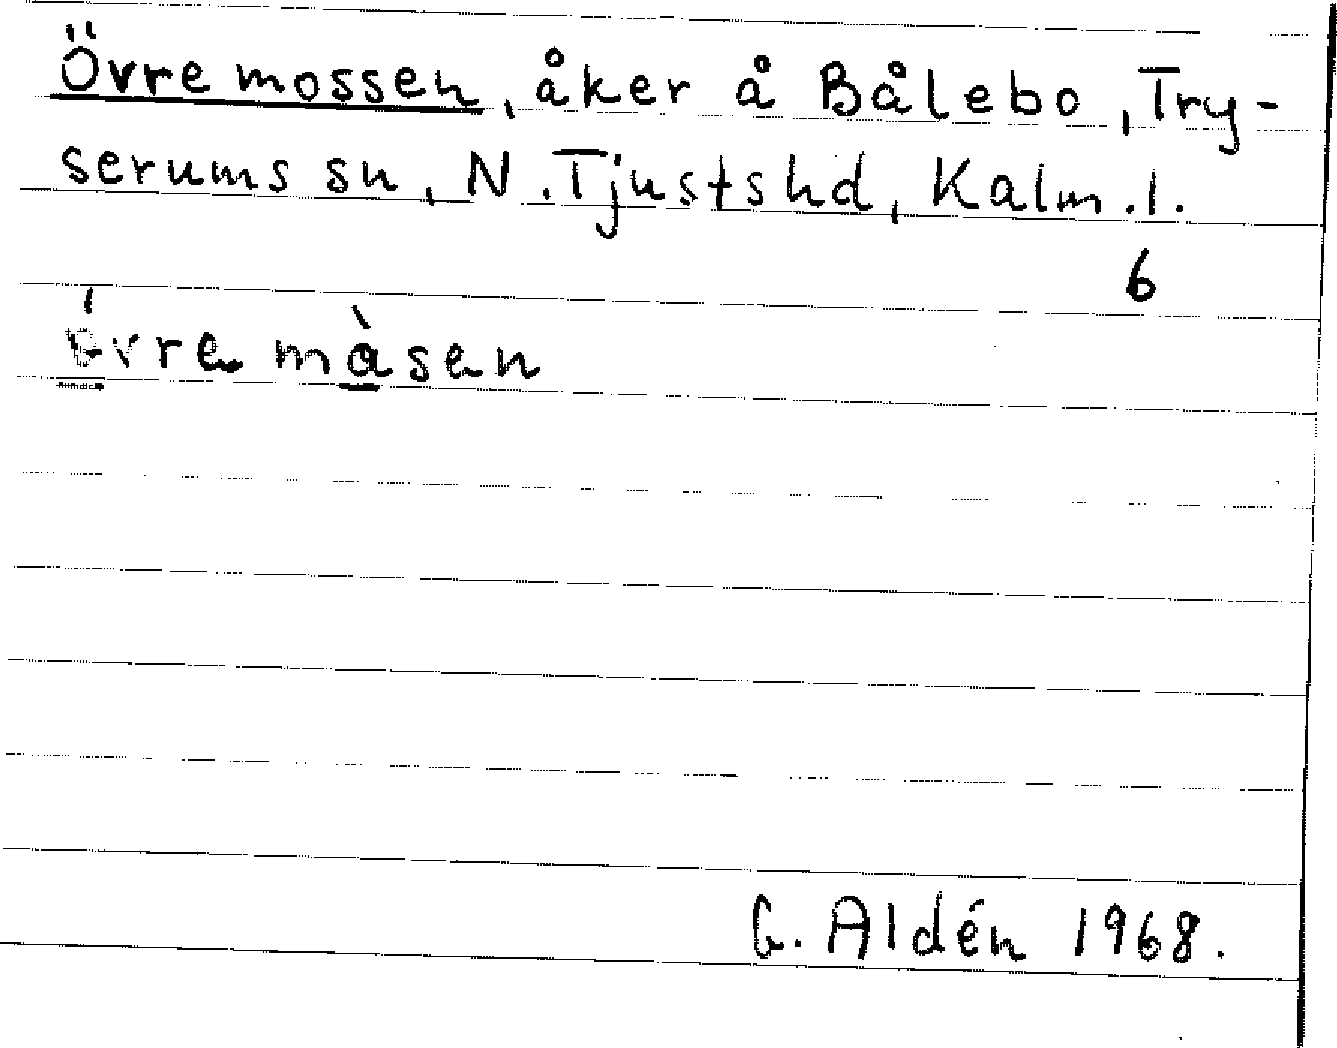 Övre mossen, åker å Bålebo, Try-
serums sn, N. Tjustshd, Kalm. l.
6
övre måsen
G. Aldén 1968.